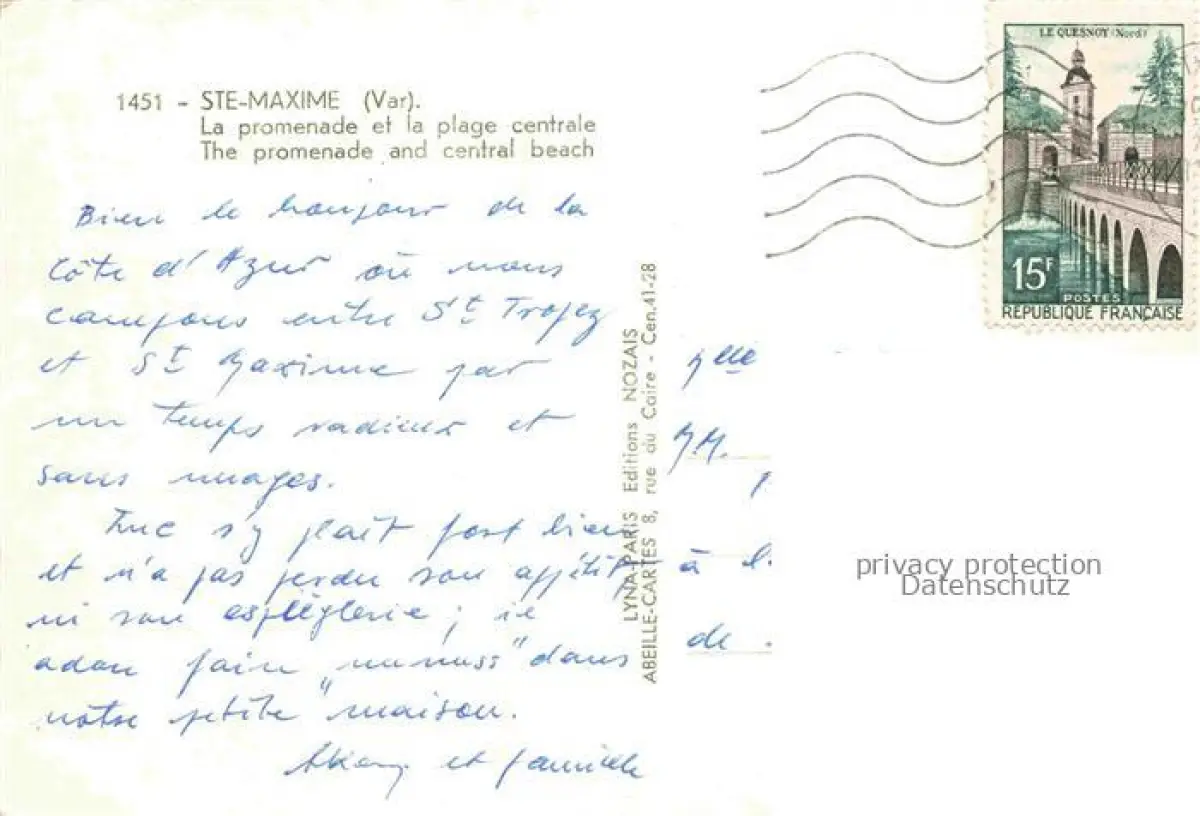 1451 - STE-MAXIME (Var).
La promenade et la plage centrale
The promenade and central beach
Bien le bonjour de la
Côte d'Azur où nous
campons entre St Tropez
et St Maxime par
un temps radieux et
sans nuages.
Luc s'y plaît fort bien
et n'a pas perdu son appétit
ni son espièglerie ; il
adore faire "mumuss" dans
notre petite "maison.
et famille
LYNA-PARIS Editions NOZAIS
ABEILLE-CARTES 8, rue du Caire - Cen.41-28
LE QUESNOY (Nord)
15F
POSTES
REPUBLIQUE FRANÇAISE
Mlle
M.M.
à
de
privacy protection
Datenschutz